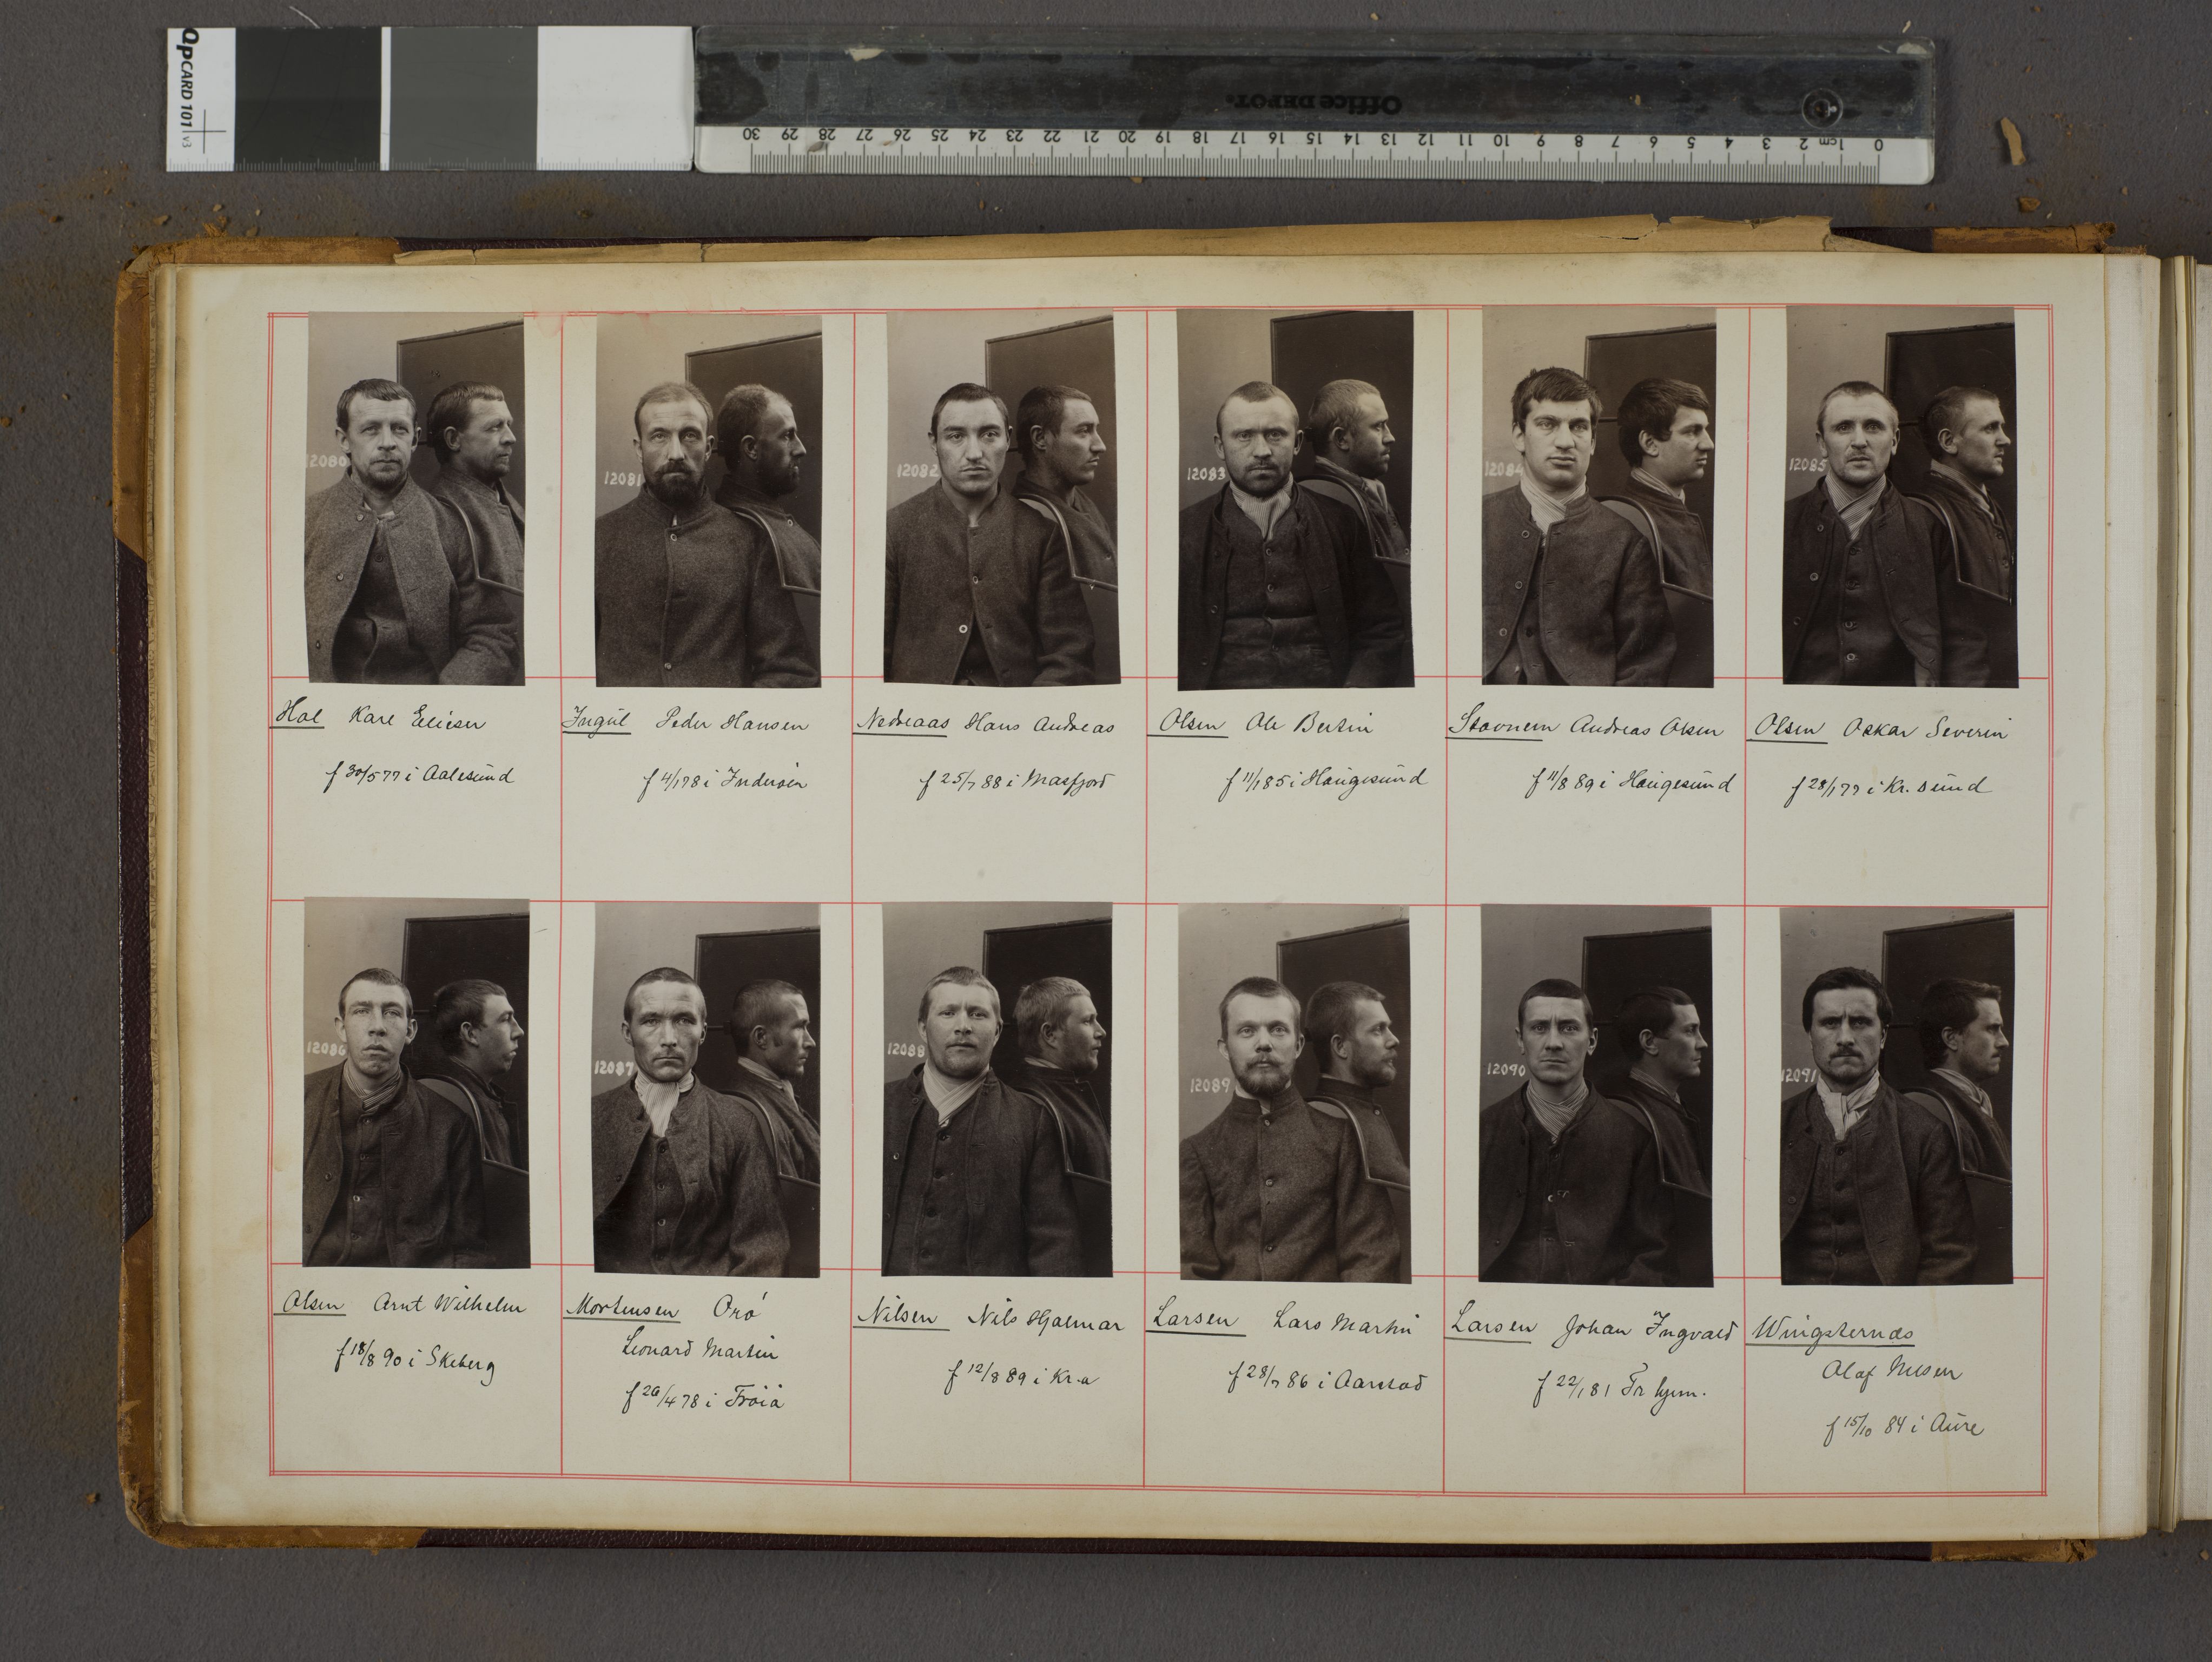 QPCARD 101 v3
Office DEPOT.
30 29 28 27 26 25 24 23 22 21 20 19 18 17 16 15 14 13 12 11 10 9 8 7 6 5 4 3 2 1cm 0
12080 12081 12082 12083 12084 12085
Hol Kare Elieser
f 30/5 77 i Aalesund
Ingul Peder Hansen
f 4/1 78 i Inderøen
Nedreaas Hans Andreas
f 25/7 88 i Masfjord
Olsen Ole Bertin
f 11/1 85 i Haugesund
Stavnem Andreas Olsen
f 11/8 89 i Haugesund
Olsen Oskar Severin
f 28/1 77 i Kr. sund
12086 12087 12088 12089 12090 12091
Olsen Arnt Wilhelm
f 18/8 90 i Skeberg
Mortensen Orö
Leonard Martin
f 26/4 78 i
Nilsen Nils Hjalmar
f 12/8 89 i Kr.a
Larsen Lars Martin
f 28/7 86 i Aarstad
Larsen Johan Ingvald
f 22/1 81 Tr. hjem.
Wingsternæs
Olaf Nilsen
f 15/10 84 i Aure